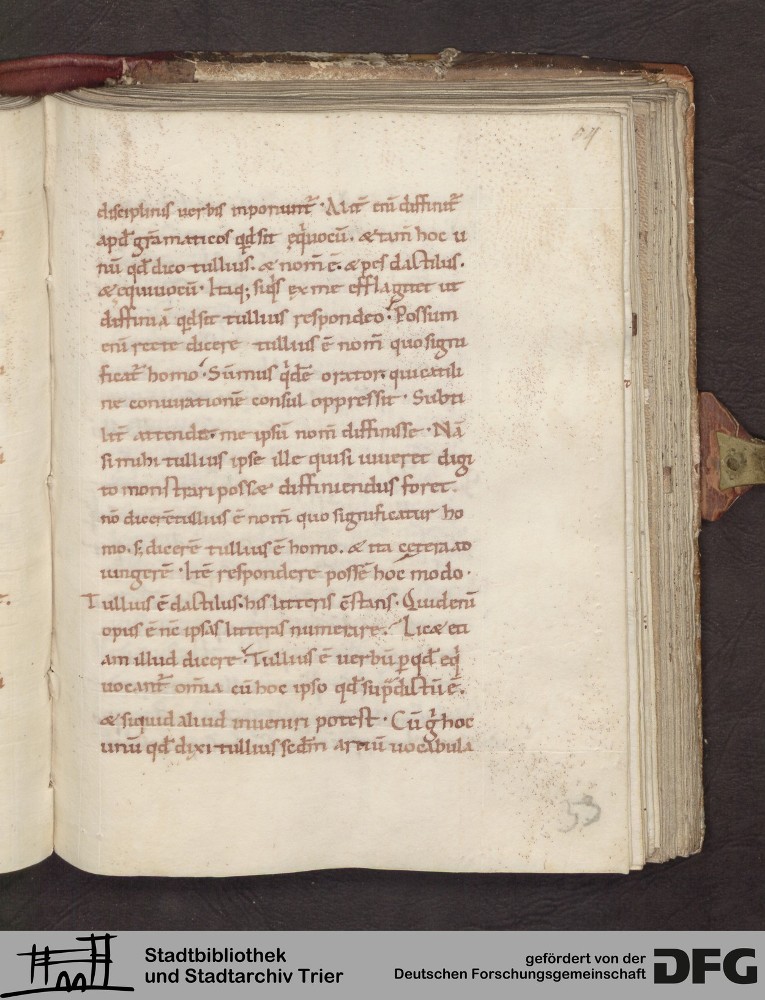 disciplinis uerbis inponunt᷑ · Alit᷑ eni᷒ diffinit᷑
apd̄ gra᷒maticos qd̄ sit ęq̇uocū. & tam̄ hoc u
nū qd̄ dico tullius. & nom̄ ē. & pes dactilus.
& equiuocū · Itaq; siq̇s ex me efflagitet ut
diffiniā qd̄ sit tullius respondeo · Possum
eni᷒ recte dicere tullius ē nom̄ quo signi
ficat᷑ homo · Sūmus q̇dē orator qui catili
ne coniurationē consul oppressit · Subti
lit᷑ attende. me ipsū nom̄ diffinisse · Nā
si mihi tullius ipse ille qui si uiueret digi
to monstrari poss& diffiniendus foret.
nō dicerē tullius ē nom̄ quo significatur ho
mo. s; dicerē tullius ē homo. & ita cętera ad
iungerē · Itē respondere possē hoc modo ·
Tullius ē dactilus. his litteris cs̄tans. Quid eni᷒
opus ē nc̄ ipsas litteras numerare. Lic& eti
am illud dicere · Tullius ē uerbū p̱ qd̄ eq̇
uocant᷑ om̄ia cū hoc ipso qd̄ sup̱dictū ē.
& siquid aliud inueniri potest · Cū g̊ hoc
unū qd̄ dixi tullius sedm̄ artiū uocabula
54
53
Stadtbibliothek
und Stadtarchiv Trier
gefördert von der
Deutschen Forschungsgemeinschaft
DFG